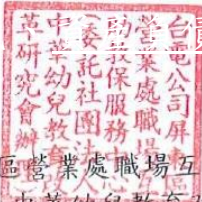 台電公司屏東
營業處職場互
助教保服務中
(委託社團法人
中華幼兒教育
革研究會辦
區營業處職場互